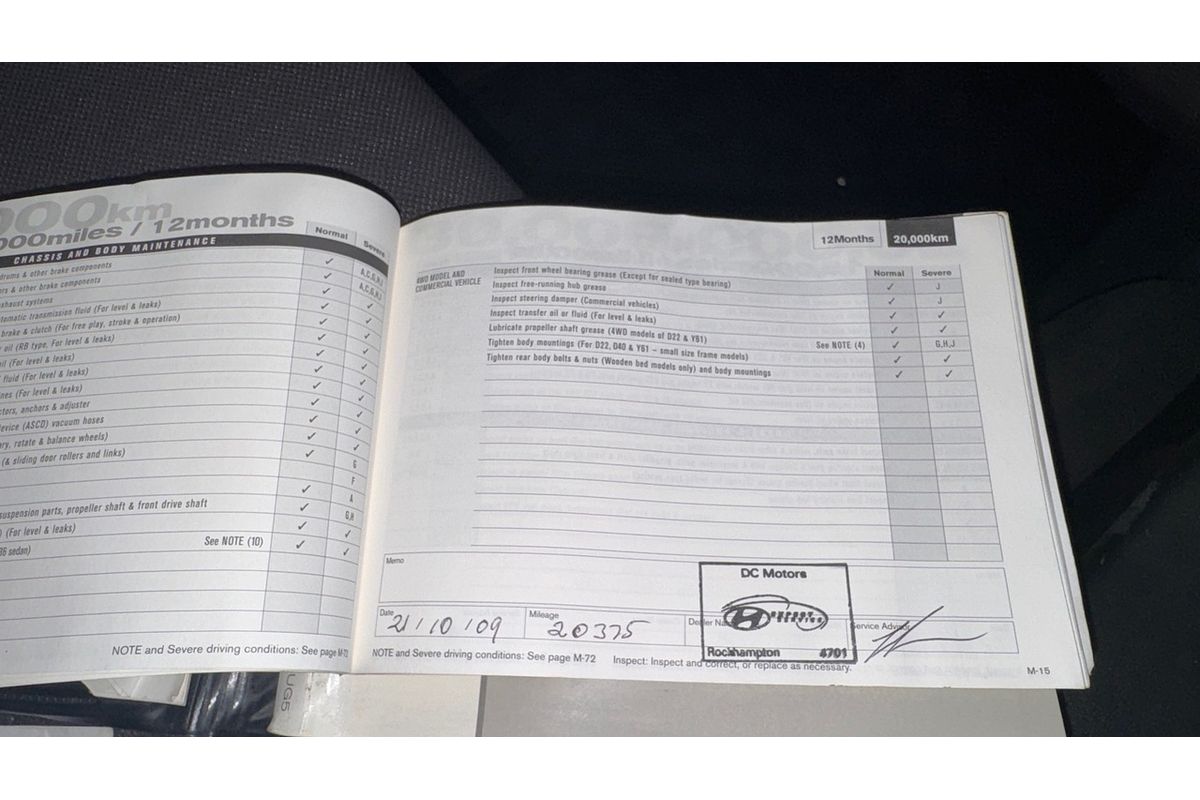 000km
000miles / 12months
Normal
Severe
CHASSIS AND BODY MAINTENANCE
drums & other brake components ✓ A,C,G,H,J
rs & other brake components ✓ A,C,G,H,J
exhaust systems ✓ ✓
tomatic transmission fluid (For level & leaks) ✓ ✓
brake & clutch (For free play, stroke & operation) ✓ ✓
oil (RB type, For level & leaks) ✓ ✓
il (For level & leaks) ✓ ✓
fluid (For level & leaks) ✓ ✓
nes (For level & leaks) ✓ ✓
ctors, anchors & adjuster ✓ ✓
evice (ASCD) vacuum hoses ✓ ✓
ary, rotate & balance wheels) ✓ ✓
(& sliding door rollers and links) ✓ G
F
suspension parts, propeller shaft & front drive shaft ✓ A
) (For level & leaks) ✓ G,H
36 sedan) See NOTE (10) ✓ ✓
✓ ✓
NOTE and Severe driving conditions: See page M-72
12Months 20,000km
Normal Severe
4WD MODEL AND
COMMERCIAL VEHICLE
Inspect front wheel bearing grease (Except for sealed type bearing) ✓ J
Inspect free-running hub grease ✓ J
Inspect steering damper (Commercial vehicles) ✓ ✓
Inspect transfer oil or fluid (For level & leaks) ✓ ✓
Lubricate propeller shaft grease (4WD models of D22 & Y61) See NOTE (4) ✓ G,H,J
Tighten body mountings (For D22, D40 & Y61 – small size frame models) ✓ ✓
Tighten rear body bolts & nuts (Wooden bed models only) and body mountings ✓ ✓
Memo
DC Motors
H EXPERT SERVICE
Rockhampton 4701
Date 21/10/09
Mileage 20375
Dealer Na
Service Advisor
NOTE and Severe driving conditions: See page M-72
Inspect: Inspect and correct, or replace as necessary.
M-15
UG5